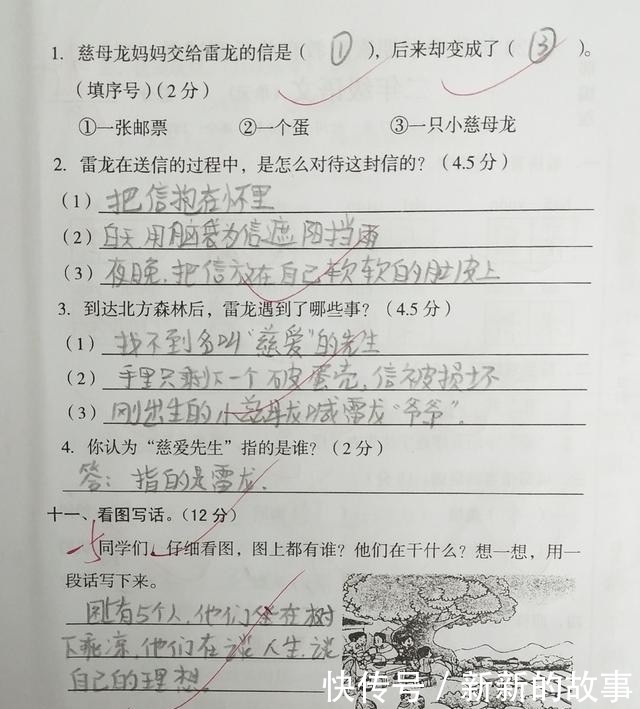 1. 慈母龙妈妈交给雷龙的信是( ① ),后来却变成了( ③ )。
(填序号)(2分)
①一张邮票 ②一个蛋 ③一只小慈母龙
2. 雷龙在送信的过程中,是怎么对待这封信的?(4.5分)
(1)把信抱在怀里
(2)白天用脑袋为信遮阳挡雨
(3)夜晚,把信放在自己软软的肚皮上
3. 到达北方森林后,雷龙遇到了哪些事?(4.5分)
(1)找不到名叫“慈爱”的先生
(2)手里只剩下一个破蛋壳,信被损坏
(3)刚出生的小慈母龙喊雷龙“爷爷”。
4. 你认为“慈爱先生”指的是谁?(2分)
答:指的是雷龙.
十一、看图写话。(12分)
-5
同学们,仔细看图,图上都有谁?他们在干什么?想一想,用一
段话写下来。
图有5个人,他们坐在树
下乘凉,他们在谈人生,谈
自己的理想。
快传号/新新的故事